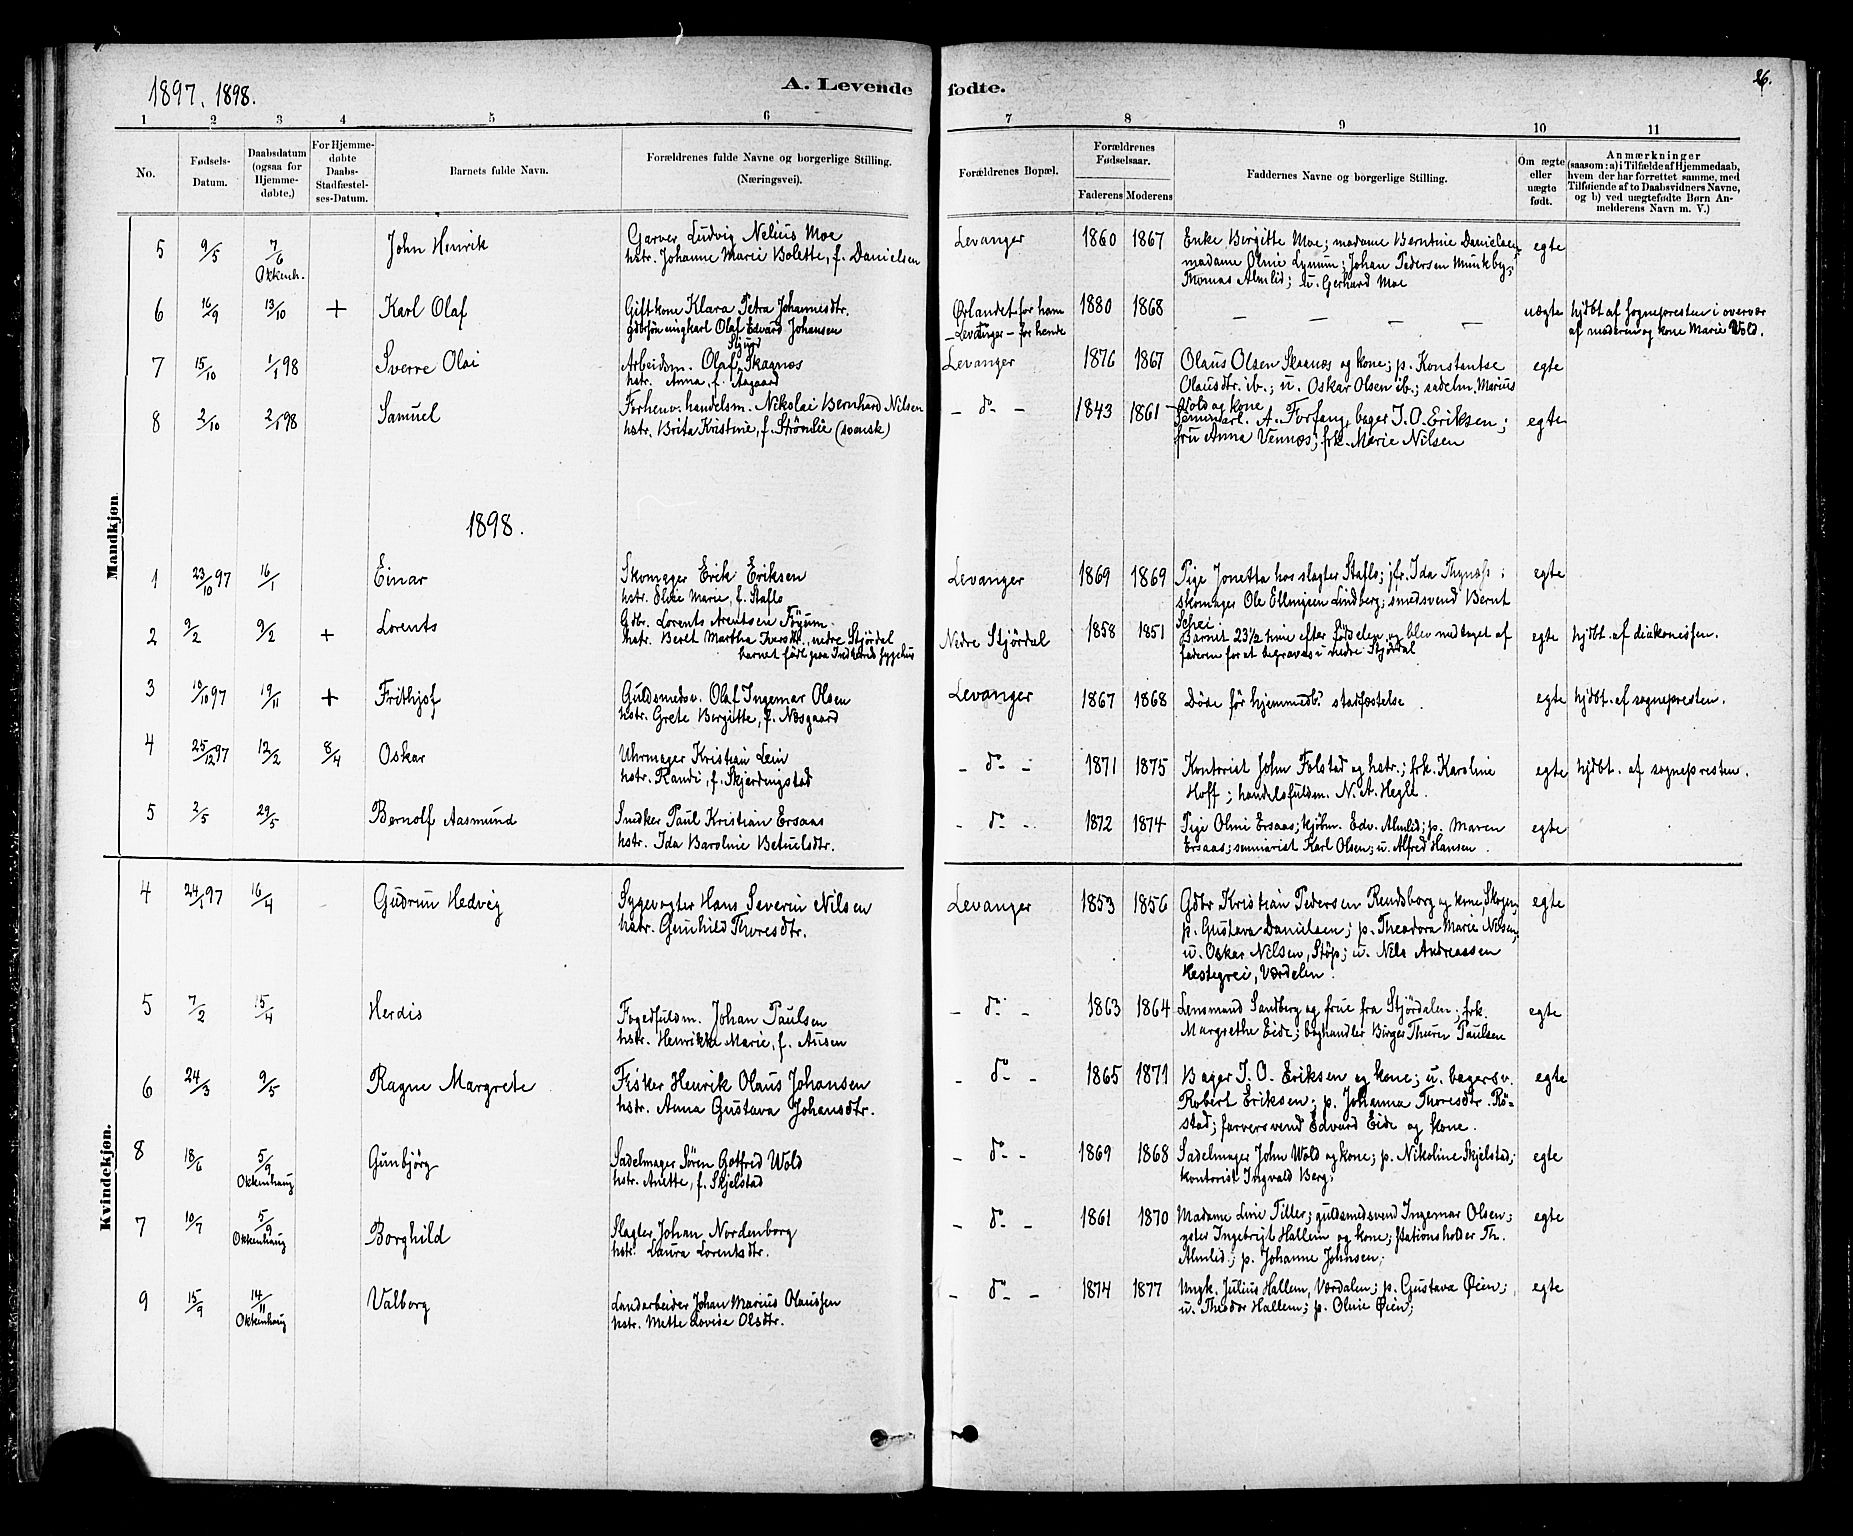 1897. 1898.
A. Levende fodte.
26.
1 2 3 4 5 6 7 8 9 10 11
No.
Fødsels-Datum.
Daabsdatum (ogsaa for Hjemmedøbte.)
For Hjemmedøbte Daabs-Stadfæstelses-Datum.
Barnets fulde Navn.
Forældrenes fulde Navne og borgerlige Stilling.
(Næringsvei).
Forældrenes Bopæl.
Forældrenes Fødselsaar.
Faderens Moderens
Faddernes Navne og borgerlige Stilling.
Om ægte eller uægte født.
Anmærkninger
(saasom: a) i Tilfælde af Hjemmedaab, hvem der har forrettet samme, med Tilføiende af to Daabsvidners Navne, og b) ved uægtefødte Børn Anmelderens Navn m. V.)
Mandkjøn.
5 9/5 7/6 Okkenh. John Henrik Garver Ludvig Nelius Moe Levanger 1860 1867 Enke Bergitte Moe; madame Berntine Danielsen; egte
hstr. Johanne Marie Bolette, f. Danielsen madame Oline Lynum; Johan Pedersen Munkeby;
Thomas Almlid; u. Gerhard Moe
6 16/9 13/10 + Karl Olaf Giftkone Klara Petra Johannesdtr. Ørlandet for ham 1880 1868 — — — — uægte hjdbt af sognepresten i overvær
gdbrsøn ungkarl Olaf Edvard Johansen – Levanger – for hende af moderen og kone Marie Vold.
7 15/10 1/1 98 Sverre Olai Arbeidsm. Olaf Sigurd Skaanes Levanger 1876 1867 Olaus Olsen Skaanes og kone; p. Konstantse egte
hstr. Anna, f. Aagaard Olausdtr. ib.; u. Oskar Olsen ib.; sadelm. Marius
Wold og kone
8 2/10 2/1 98 Samuel Forhenv. handelsm. Nikolai Bernhard Nilsen – do – 1843 1861 Seminarl. A. Forfang, bager J. O. Eriksen; egte
hstr. Brita Kristine, f. Strømlie (svensk) fru Anna Vennes; frk. Marie Nilsen
1898.
1 23/10 97 16/1 Einar Skomager Erik Eriksen Levanger 1869 1869 Pige Jonetta hos slagter Staflo; jfr. Ida Thynæs; egte
hstr. Oline Marie, f. Staflo skomager Ole Ellingsen Lindberg; smedsvend Bernt
Schei.
2 9/2 9/2 + Lorents Gdbr. Lorents Arentsen Føyum. Nedre Stjørdal 1858 1851 Barnet 23 1/2 time efter fødselen og blev medtaget af egte hjdbt. af diakonissen.
hstr. Beret Martha Iversdtr., nedre Stjørdal faderen for at begraves i nedre Stjørdal
barnet født paa Indherreds sygehus
3 10/10 97 19/11 + Frithjof Guldsmedsv. Olaf Ingemar Olsen Levanger 1867 1868 Døde før hjemmedb. stadfæstelse. egte hjdbt. af sognepresten.
hstr. Grete Bergitte, f. Næsgaard
4 25/12 97 12/2 8/4 Oskar Uhrmager Kristian Lein – do – 1871 1875 Kontorist John Folstad og hstr.; frk. Karoline egte hjdbt. af sognepresten.
hstr. Randi, f. Skjerdingstad Hoff; handelsfuldm. N. A. Hegle.
5 2/5 29/5 Bernolf Aasmund Snedker Paul Kristian Ersaas – do – 1872 1874 Pige Oline Ersaas; kjøbm. Edv. Almlid; p. Maren egte
hstr. Ida Baroline Betuelsdtr. Ersaas; seminarist Karl Olsen; u. Alfred Hansen.
Kvindekjøn.
4 24/1 97 16/4 Gudrun Hedvig Sygevogter Hans Severin Nilsen Levanger 1853 1856 Gdbr Kristian Pedersen Rendsborg og kone, Skogn; egte
hstr. Gunhild Thoresdtr. p. Gustava Danielsen; p. Theodora Marie Nilsen;
u. Oskar Nilsen, Støp; u. Nils Andreassen
Hestegrei, Værdalen.
5 7/2 15/4 Herdis Fogedfuldm. Johan Paulsen – do – 1863 1864 Lensmand Sandberg og frue fra Stjørdalen; frk. egte
hstr. Henrikka Marie, f. Ausen Margrethe Eide; boghandler Birger Thurn Paulsen
6 24/3 9/5 Ragne Margrete Fisker Henrik Olaus Johansen – do – 1865 1871 Bager J. O. Eriksen og kone; u. bagersv. egte
hstr. Anna Gustava Johansdtr. Robert Eriksen; p. Johanna Thoresdtr. Rö-
stad; farversvend Edvard Eide og kone.
8 18/6 5/9 Okkenhaug Gunbjörg Sadelmager Sören Gotfred Wold – do – 1869 1868 Sadelmager John Wold og kone; p. Nikoline Skjelstad; egte
hstr. Anette, f. Skjelstad kontorist Ingvald Berg;
7 10/7 5/9 Okkenhaug Borghild Slagter Johan Nordenborg – do – 1861 1870 Madame Line Tiller; guldsmedsvend Ingemar Olsen; egte
hstr. Laura Lorentsdtr. Ingebrigt Hallem og kone; stationsholder Th.
Almlid; p. Johanne Johnsen;
9 15/9 14/11 Okkenhaug Valborg Landarbeider Johan Marius Olaussen – do – 1874 1877 Ungk. Julius Hallem, Værdalen; p. Gustava Øien; egte
hstr. Mette Lovise Olsdtr. u. Theodor Hallem; p. Oline Øien;